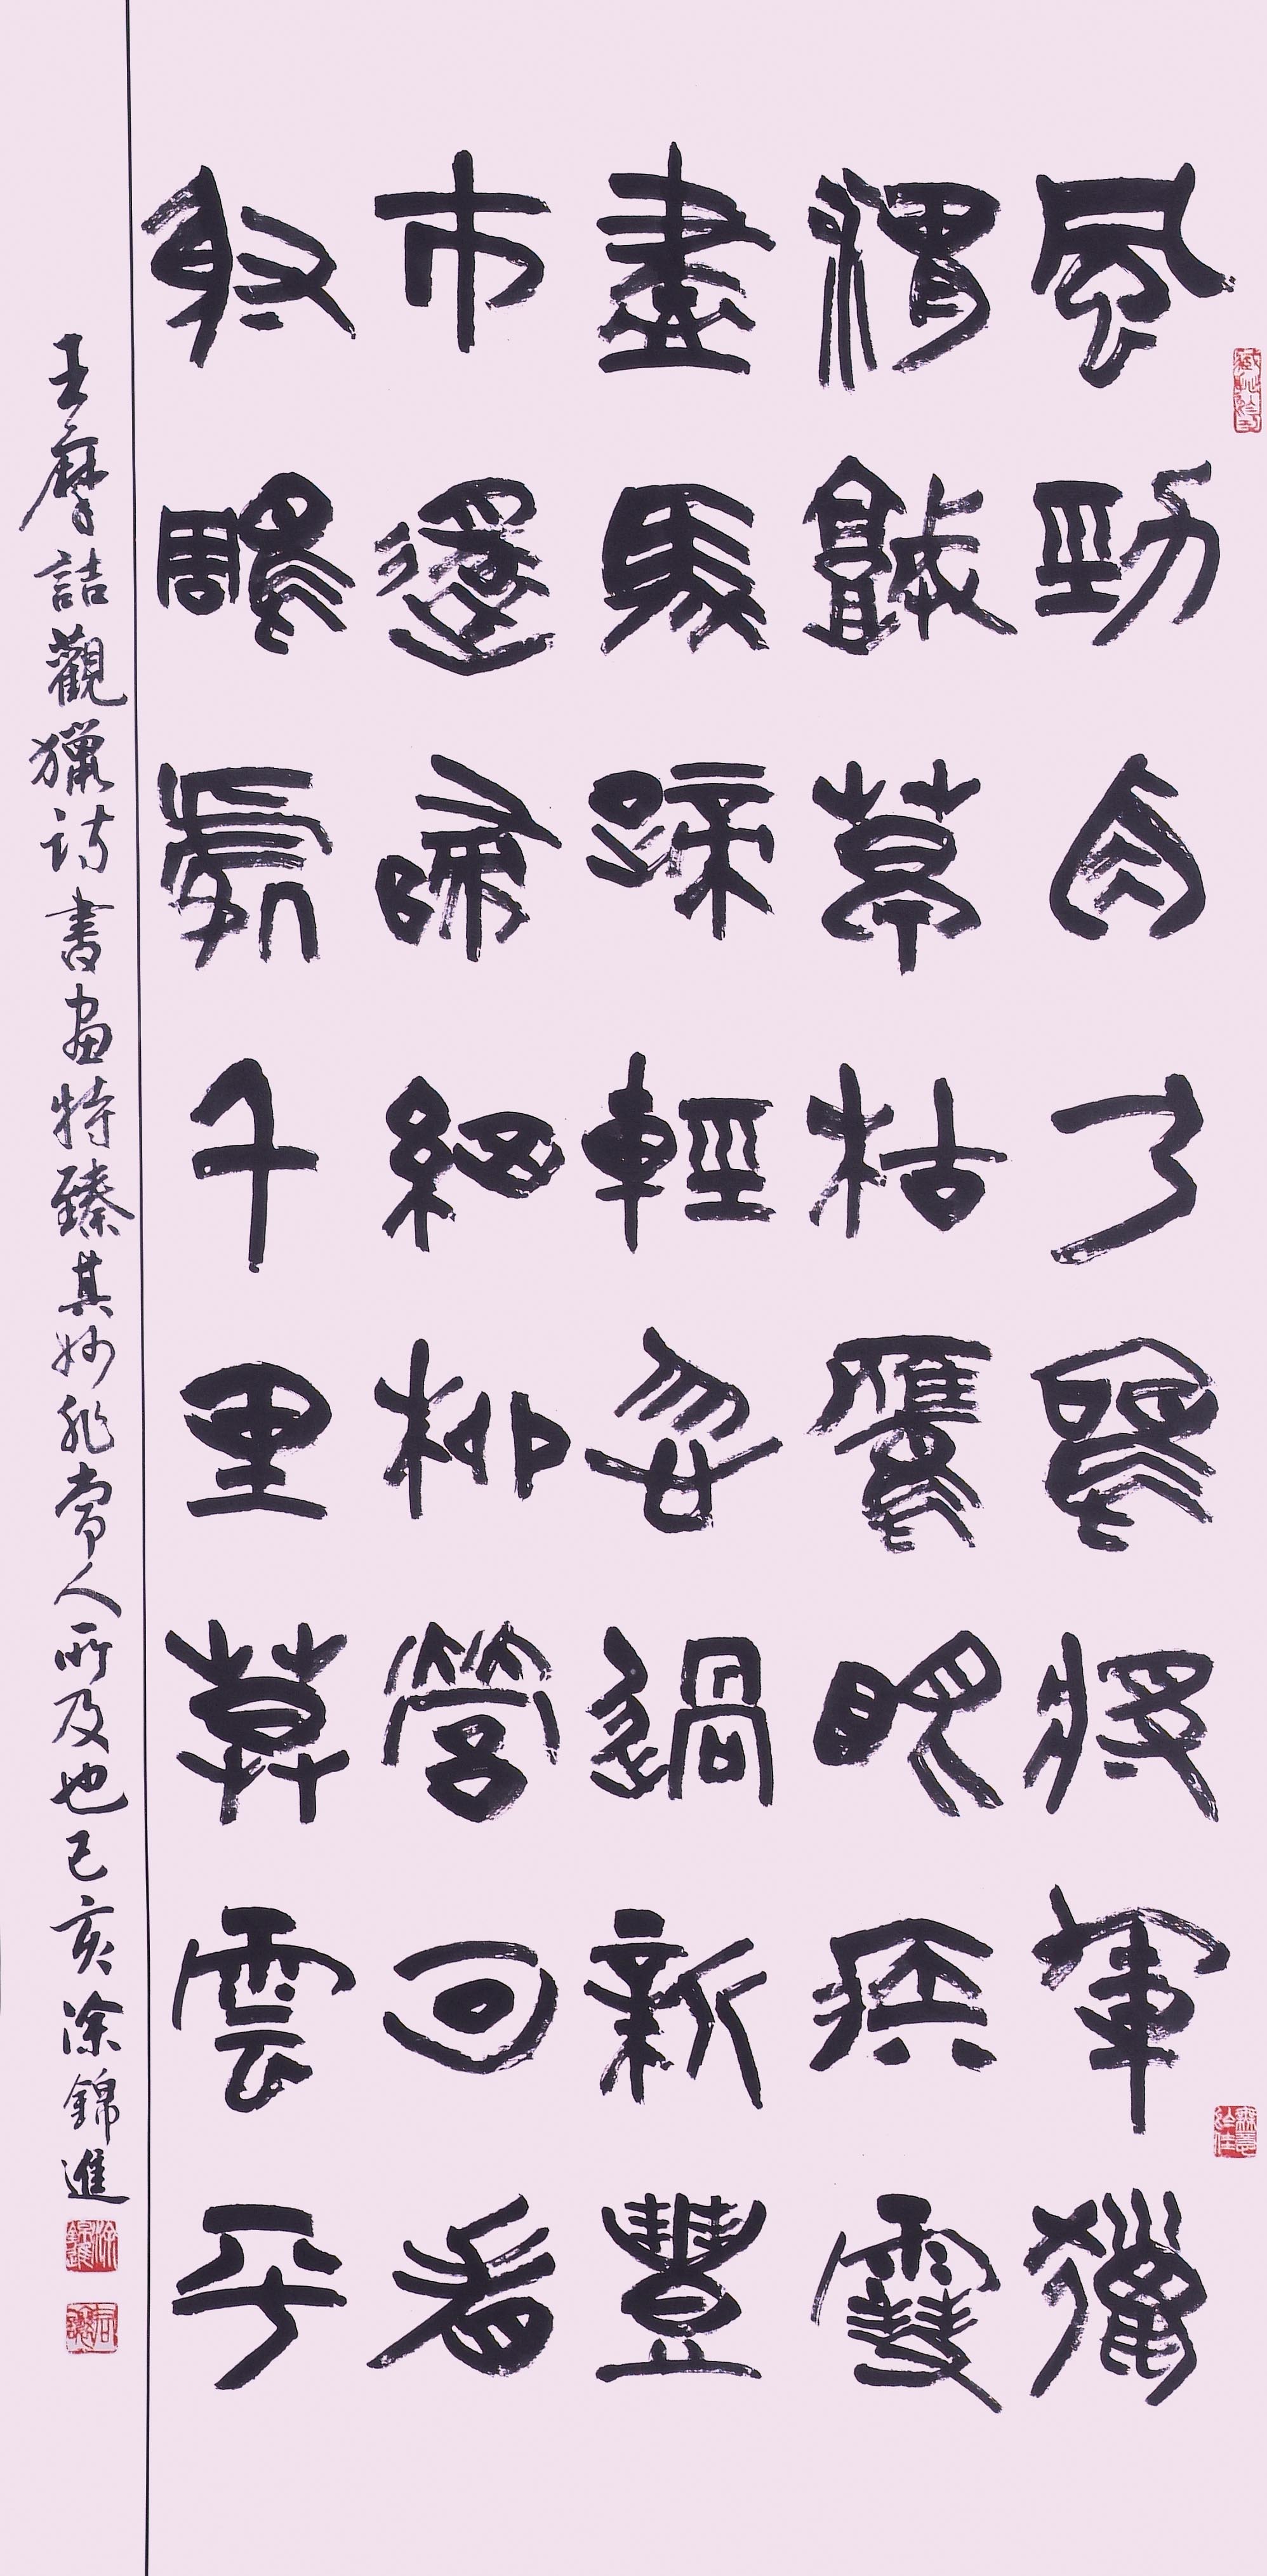 風勁角弓鳴將軍獵
渭城草枯鷹眼疾雪
盡馬蹄輕忽過新豐
市還歸細柳營回看
射鵰處千里暮雲平
王摩詰觀獵詩書畫特臻其妙非常人所及也己亥涂錦進